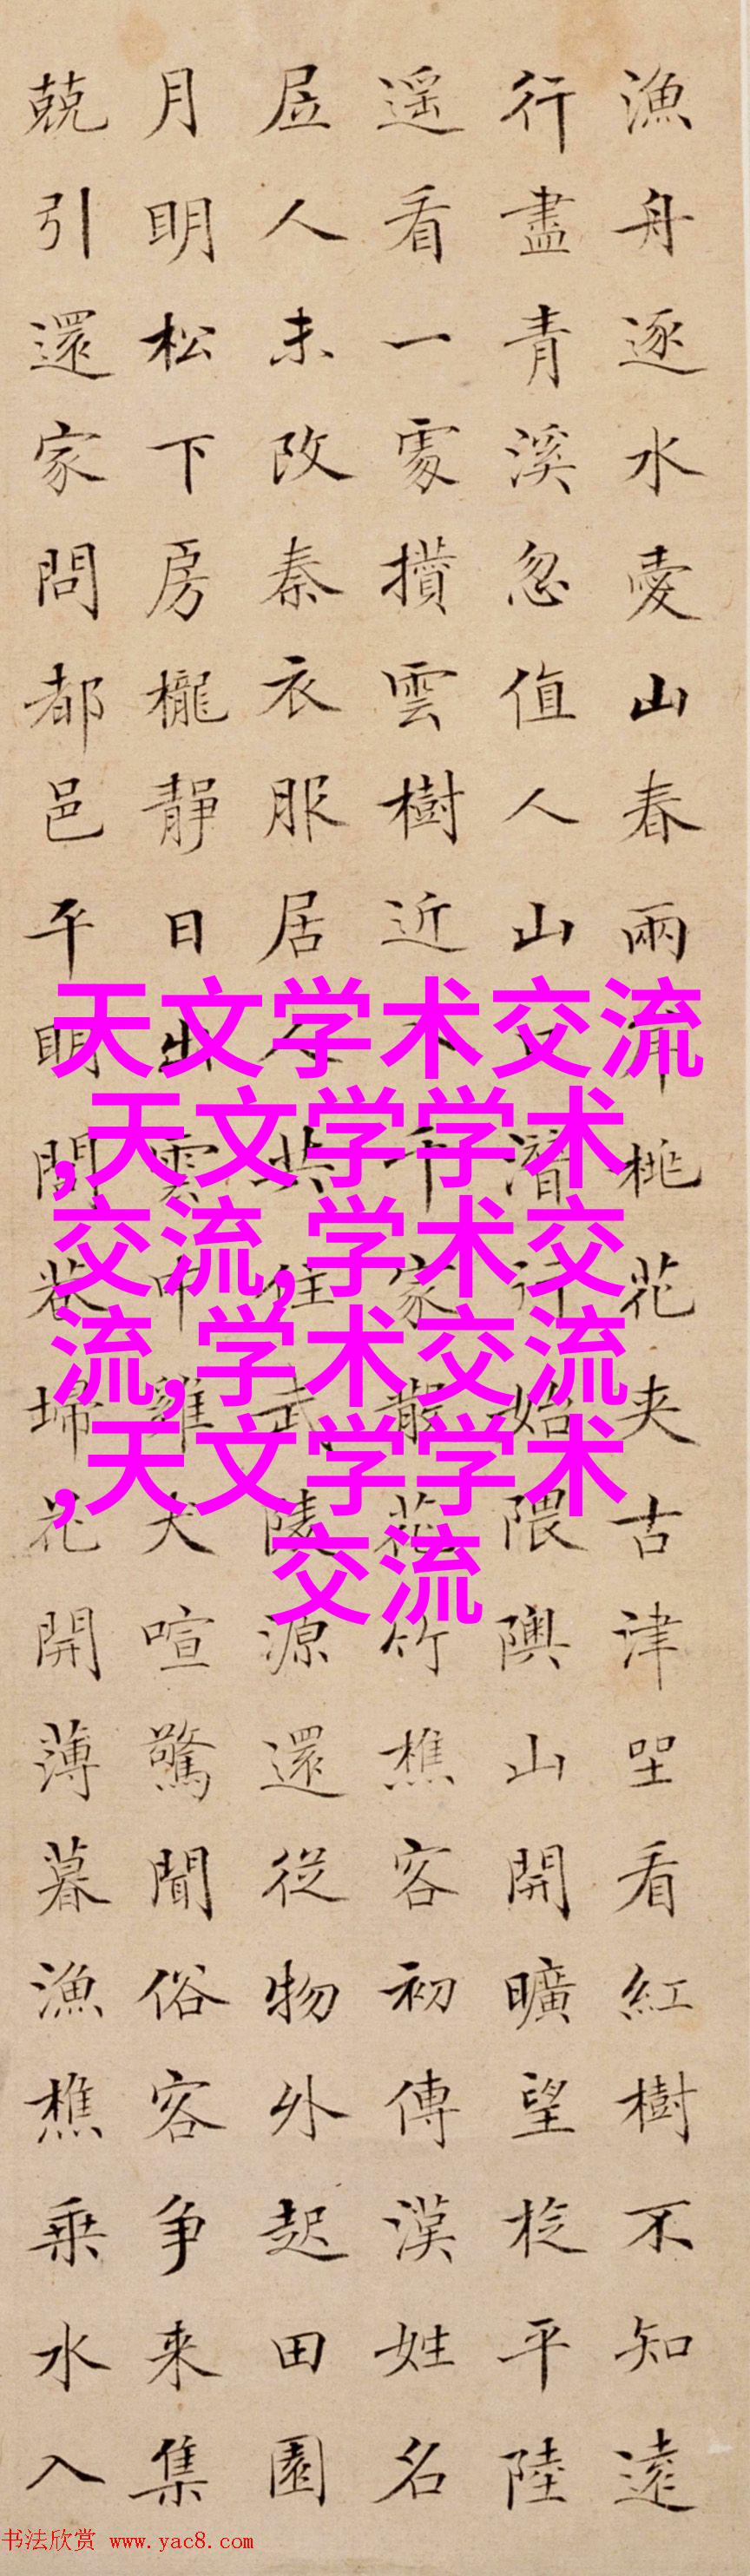 漁舟逐水愛山春兩岸桃花夾古津坐看紅樹不知遠
行盡青溪忽值人山口潛行始隈隩山開曠望旋平陸
遥看一處攢雲樹近入千家散花竹樵客初傳漢姓名
居人未改秦衣服居人共住武陵源還從物外起田園
月明松下房櫳靜日出雲中雞犬喧驚聞俗客争来集
競引還家問都邑平明閭巷掃花開薄暮漁樵乗水入
天文学术交流
,天文学学术
交流,学术交
流,学术交流
,天文学学术
交流
书法欣赏 www.yac8.com